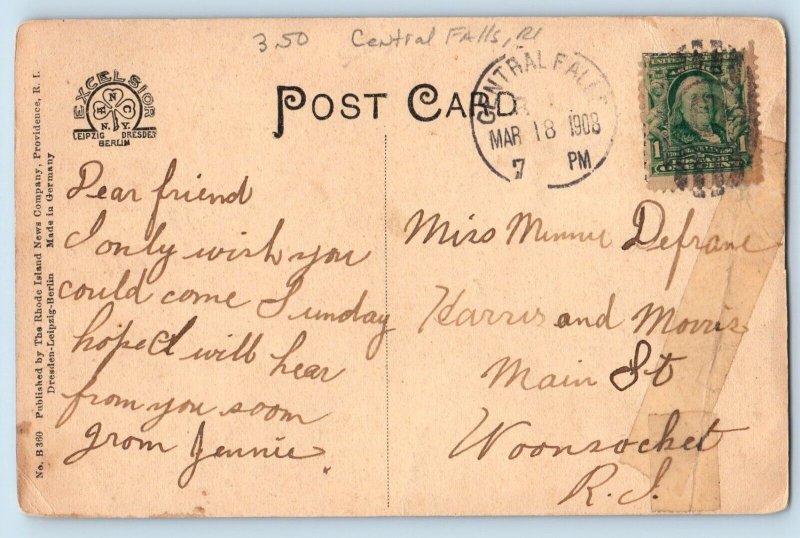 3.50 Central Falls, RI
EXCELSIOR
N.Y.
LEIPZIG DRESDEN
BERLIN
POST CARD
CENTRAL FALLS
MAR 18 1908
7 PM
1 1
Dear friend
I only wish you
could come Sunday
hope I will hear
from you soom
From Jennie.
Miss Minnie Defrane
Harris and Morris
Main St
Woonsocket
R.I.
No. B 360 Published by The Rhode Island News Company, Providence, R. I.
Dresden-Leipzig-Berlin Made in Germany